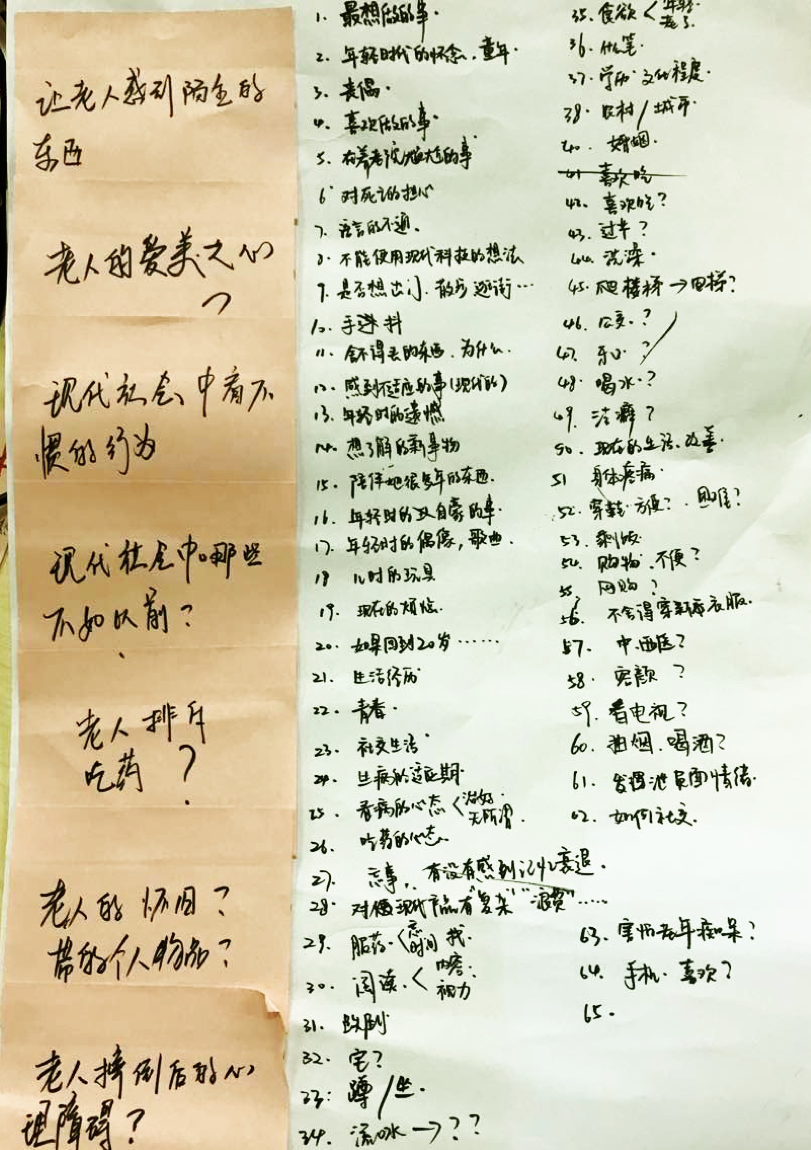 让老人感到陌生的
东西
老人的爱美之心
?
现代社会中看不
惯的行为
现代社会中哪些
不如以前?
老人排斥
吃药?
老人的怀旧?
带的个人物品?
老人摔倒后的心
理障碍?
1. 最想做的事.
2. 年轻时代的怀念. 童年.
3. 丧偶.
4. 喜欢做的事.
5. 在养老院尴尬的事
6 对死亡的担心
7. 语言的不通.
8. 不能使用现代科技的想法
9. 是否想出门. 散步 逛街…
10. 手抖
11. 舍不得丢的东西. 为什么.
12. 感到不适应的事(现代的)
13. 年轻时的遗憾
14. 想了解的新事物
15. 陪伴她很多年的东西.
16. 年轻时的且自豪的事.
17. 年轻时的偶像, 歌曲.
18 儿时的玩具
19. 现在的烦恼.
20. 如果回到20岁……
21. 生活经历
22. 青春.
23. 社交生活
24. 生病的适应期.
25. 看病的心态<治好 无所谓.
26. 吃药的心态.
27. 忘事, 有没有感到记忆衰退.
28. 对于现代产品有"复杂""浪费"……
29. 服药.<忘 时间 找.
30. 阅读.<内容. 视力
31. 跌倒
32. 宅?
33: 蹲/坐.
34. 流口水→??
35. 食欲<年轻 老了
36. 假笔
37. 学历 文化程度.
38. 农村/城市
40. 婚姻.
41 喜欢吃
42. 喜欢吃?
43. 过年?
44. 洗澡.
45. 爬楼梯→电梯?
46. 公交.?
47. 牙口?
48. 喝水.?
49. 洁癖?
50. 现在的生活. 改善.
51 身体疼痛.
52. 穿鞋 方便?. 困难?
53. 剩饭
54. 购物. 不便?
55. 网购?
56. 不舍得穿新衣服.
57. 中西医?
58. 容颜?
59. 看电视?
60. 抽烟. 喝酒?
61. 发泄负面情绪.
62. 如何社交.
63. 害怕老年痴呆?
64. 手机. 喜欢?
65.